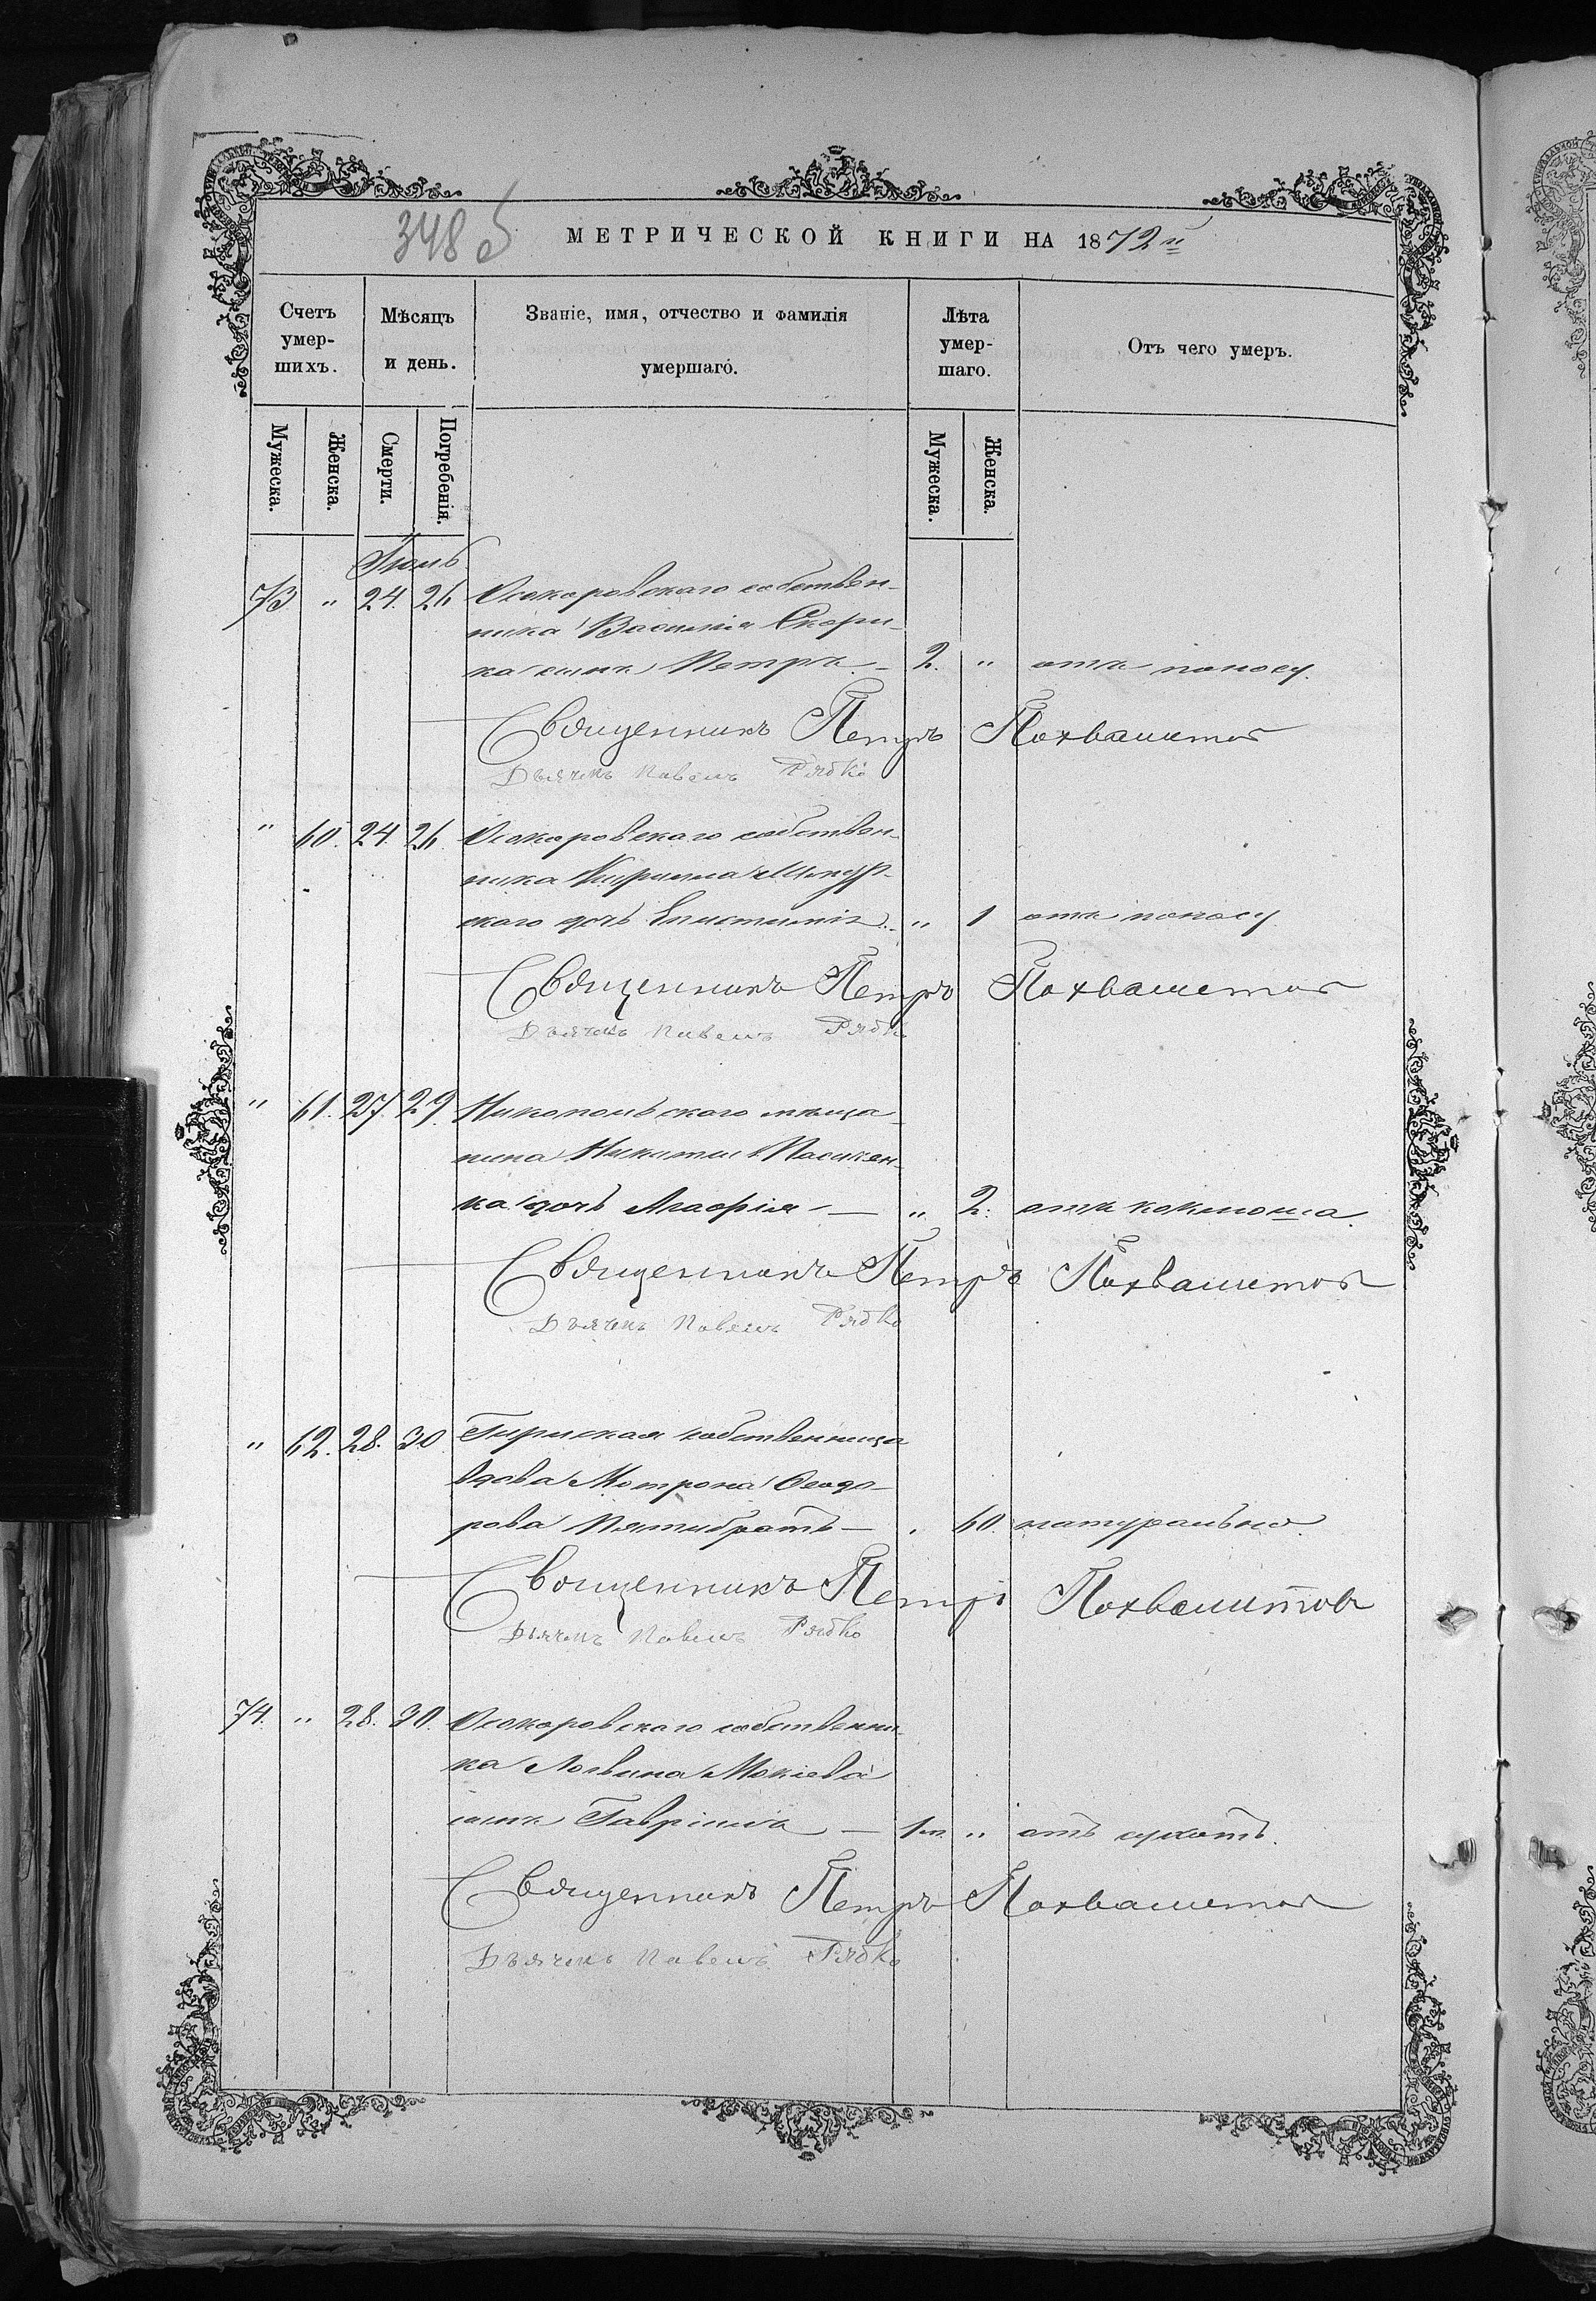 348 б
МЕТРИЧЕСКОЙ КНИГИ НА 1872й
Счетъ умер-шихъ.
Мѣсяцъ и день.
Званіе, имя, отчество и фамилія умершаго.
Лѣта умер-шаго.
Отъ чего умеръ.
Мужеска.
Женска.
Смерти.
Погребенія.
Мужеска.
Женска.
Іюль
73 " 24. 26 Осокоровскаго собствен-
ника Василія Скори-
ка сынъ Петръ. - 2. " отъ поносу.
Священникъ Петръ Похвалитовъ
Дьячекъ Павелъ Рябко
" 60. 24. 26. Осокоровскаго собствен-
ника Кирилла
скаго дочь Епистимія.. " 1 отъ поносу
Священникъ Петръ Похвалитовъ
Дьячекъ Павелъ Рябко
" 61. 27. 29. Никопольского мѣща-
нина Никиты Пасичен-
ка дочь Агафія - " 2. отъ коклюша.
Священникъ Петръ Похвалитовъ
Дьячекъ Павелъ Рябко
" 62. 28. 30. собственница
вдова Мотрона Феодо-
рова Пятибратъ - . 60. натурально.
Священникъ Петръ Похвалитовъ
Дьячекъ Павелъ Рябко
74. " 28. 30. Осокоровскаго собственни-
ка Логвина Мокіева
сынъ Гавріилъ - 1 " отъ сухотъ.
Священникъ Петръ Похвалитовъ
Дьячекъ Павелъ Рябко